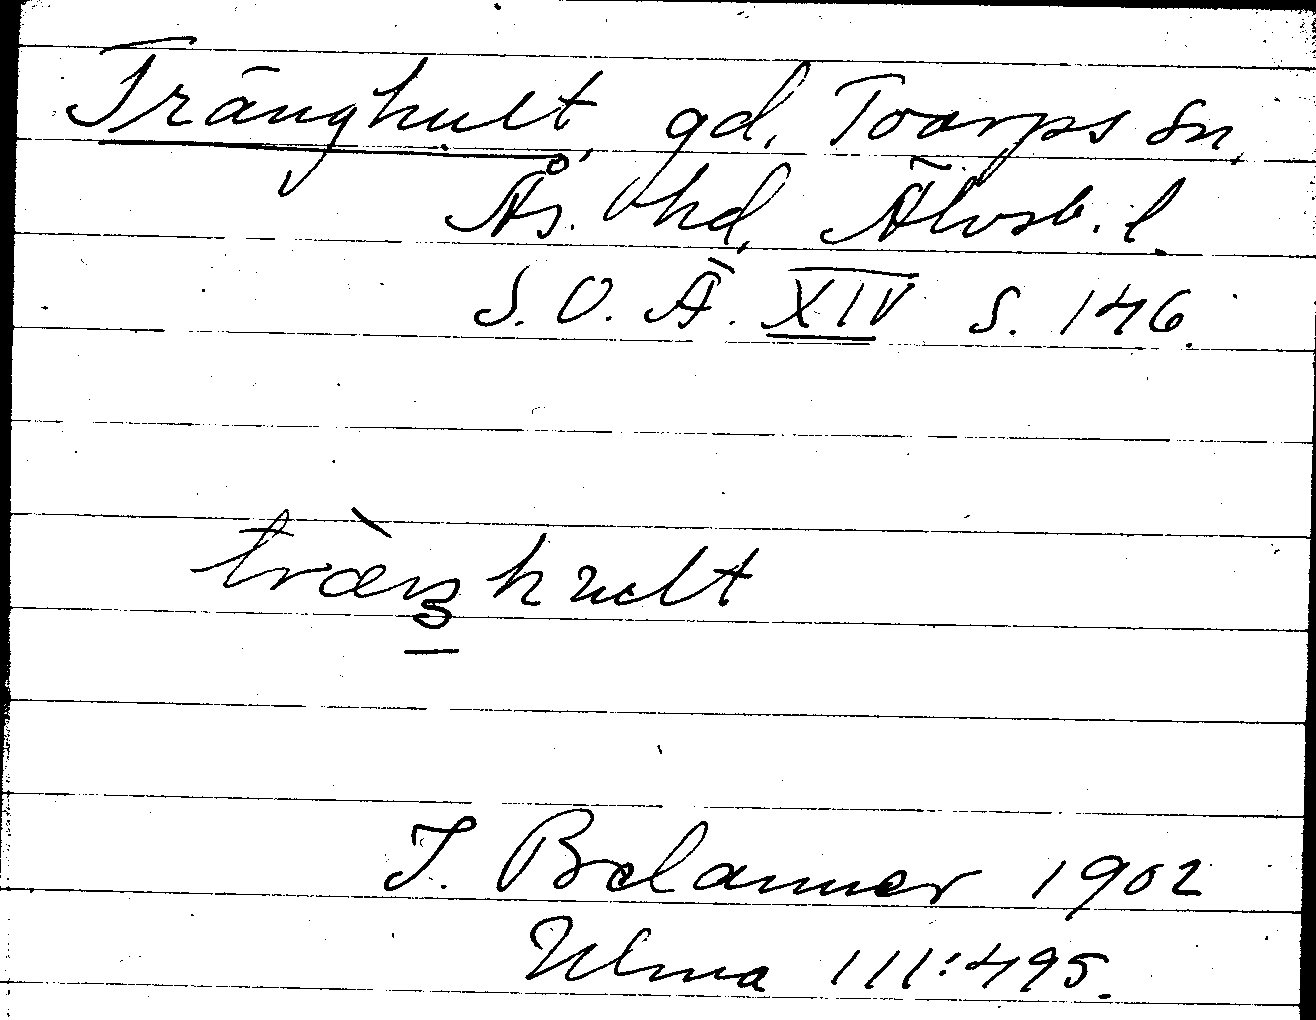 Tränghult, gd. Toarps sn,
Ås. hd, Älvsb. l.
S. O. Ä. XIV s. 146.
træ̀ŋhult
T. Belanner 1902
Ulma 111:495.